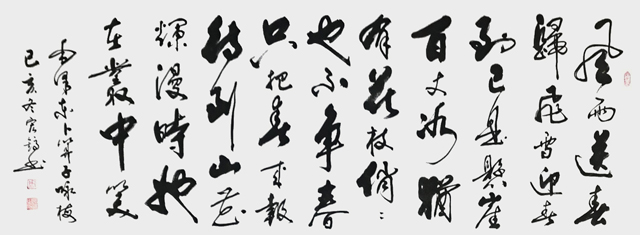 風雨送春
歸飛雪迎春
到已是懸崖
百丈冰猶
有花枝俏〻
也不爭春
只把春来報
待到山花
爛漫時她
在叢中笑
毛澤東卜算子咏梅
己亥冬